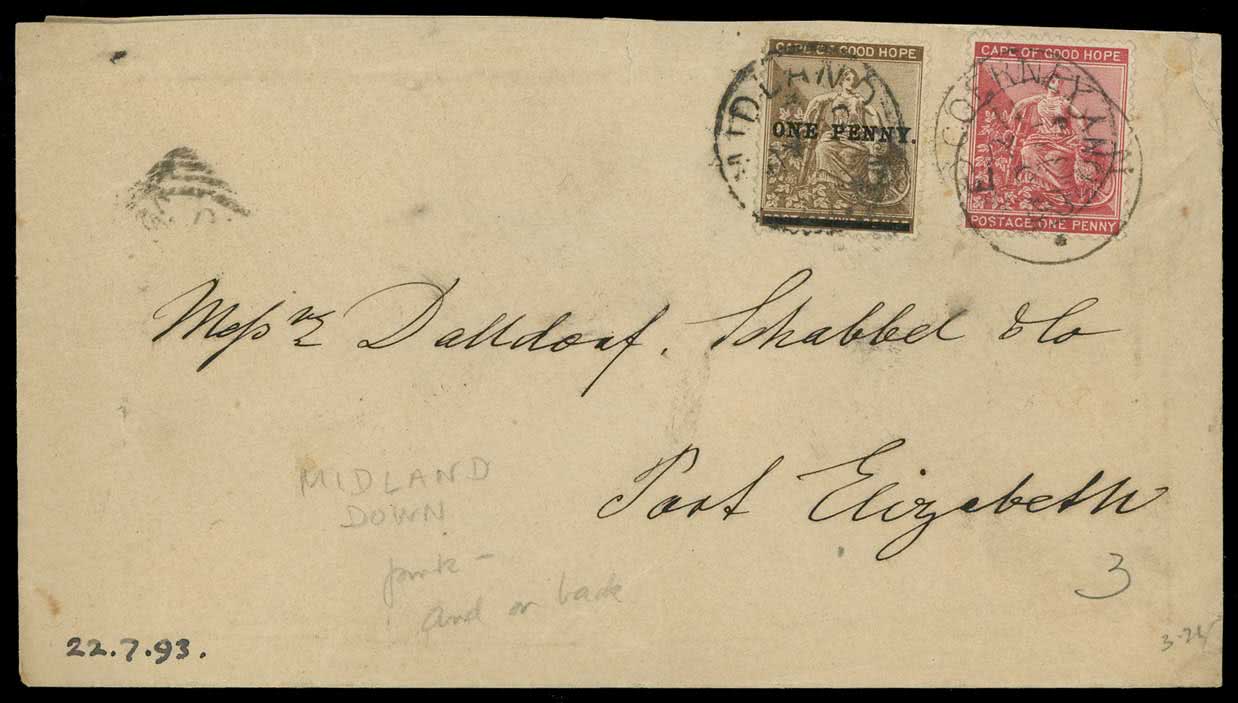 CAPE OF GOOD HOPE
MIDLAND
ONE PENNY.
CAPE OF GOOD HOPE
POSTAGE ONE PENNY
Messrs Dalldorf, Schabbel & Co
Port Elizabeth
MIDLAND
DOWN
and on back
3
22.7.93.